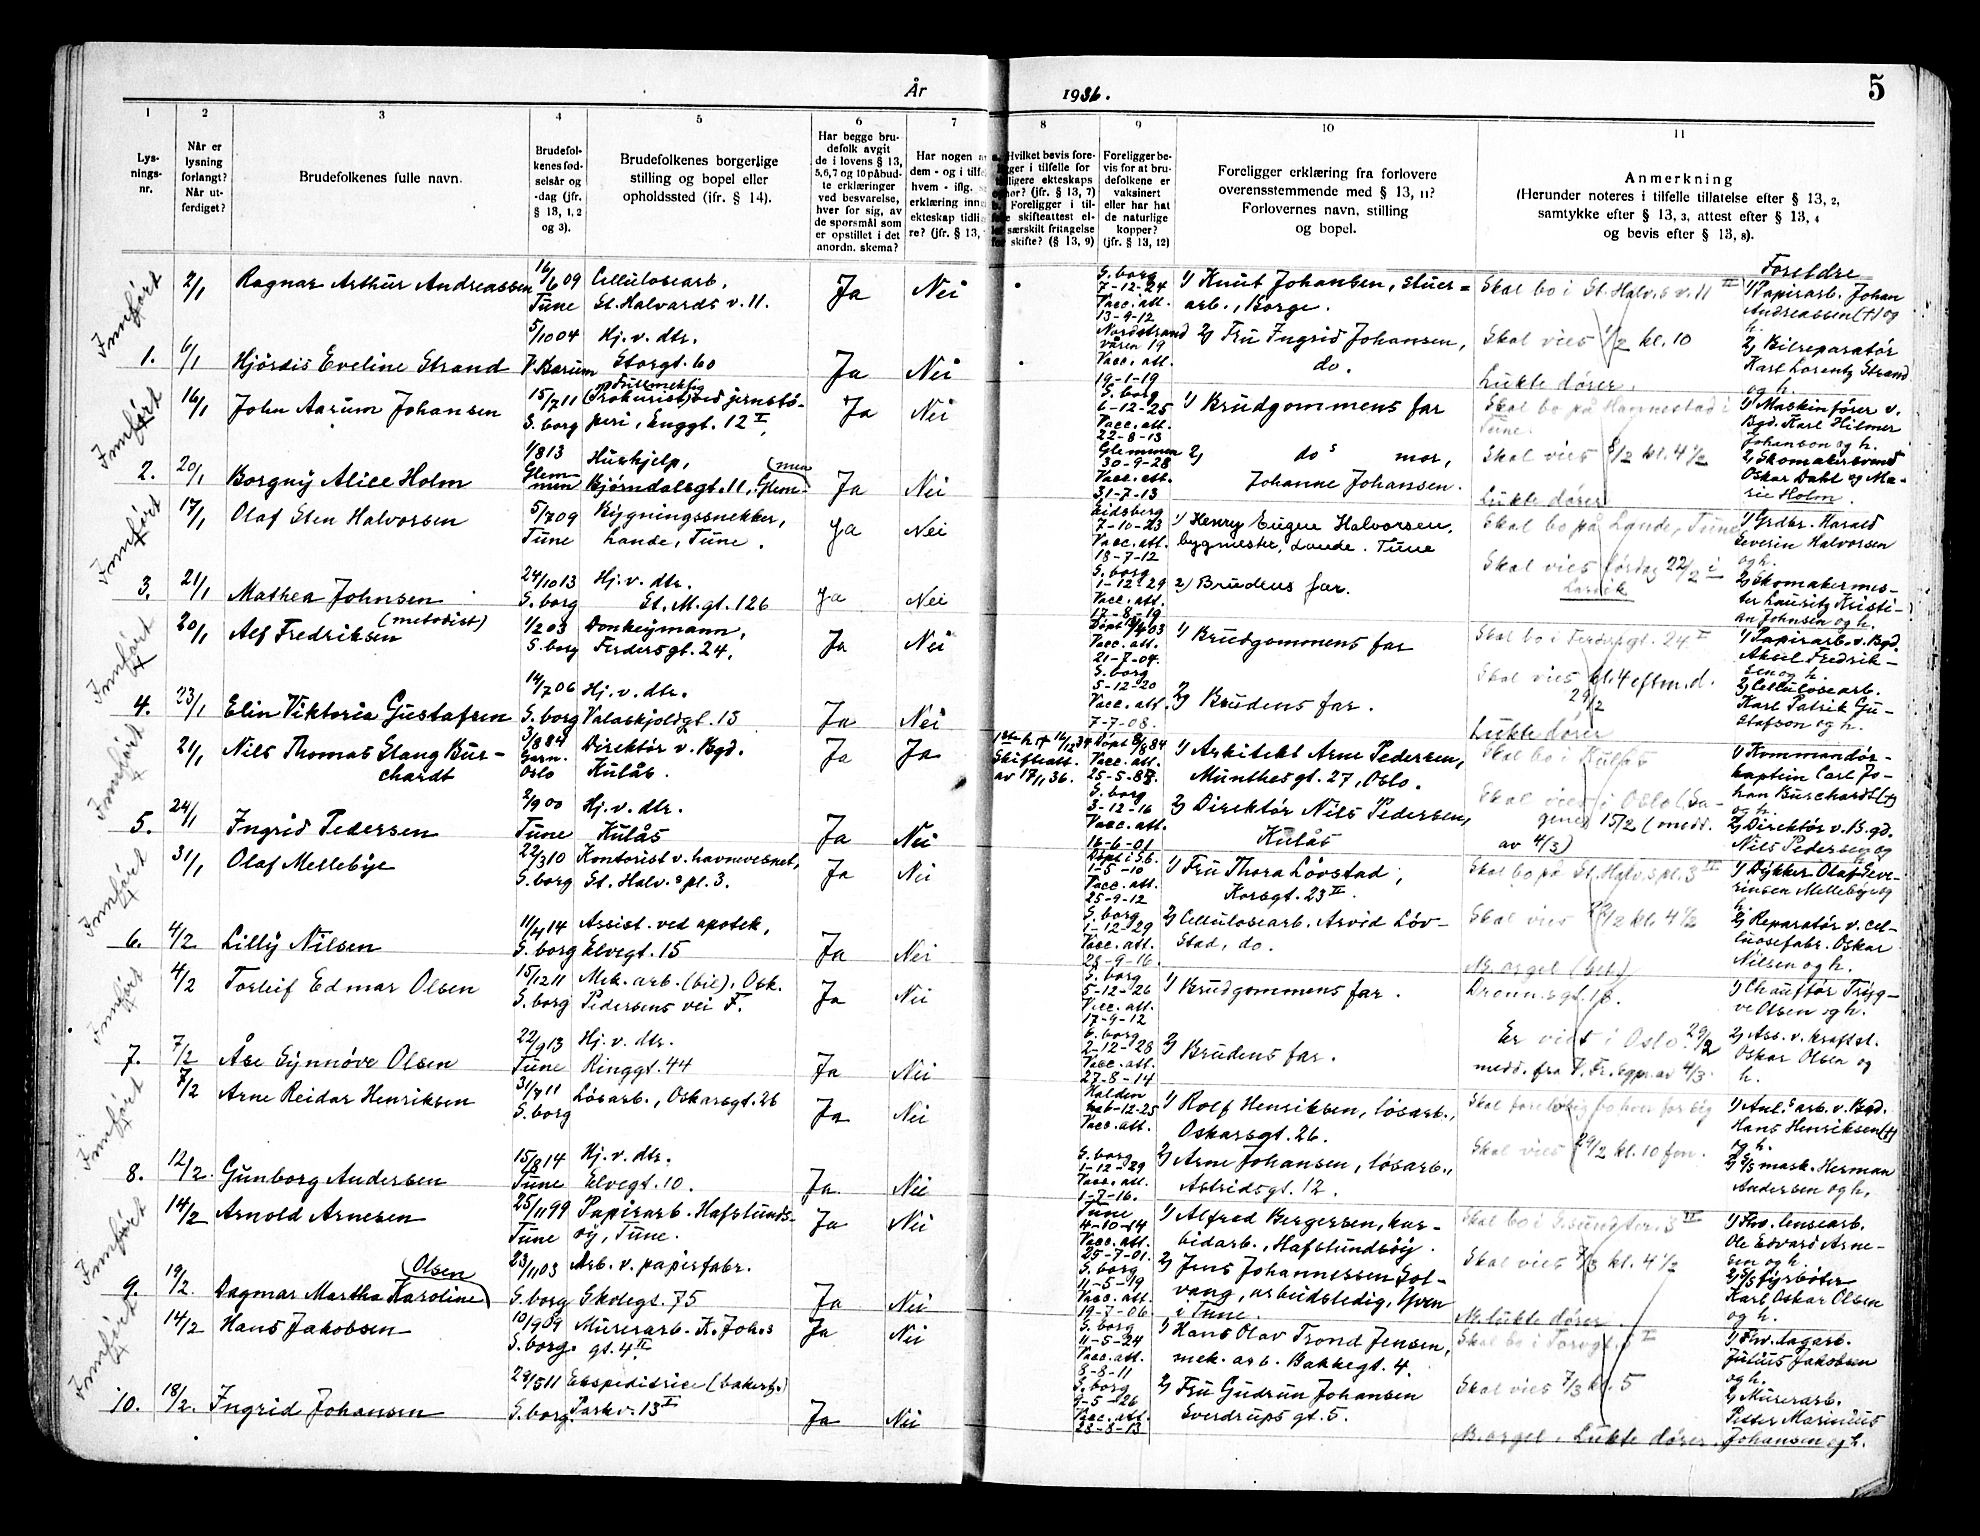 År
1936.
5
1
2
3
4
5
6
7
8
9
10
11
Lys-
nings-
nr.
Når er
lysning
forlangt?
Når ut-
ferdiget?
Brudefolkenes fulle navn.
Brudefol-
kenes fød-
selsår og
-dag (jfr.
§ 13, 1, 2
og 3).
Brudefolkenes borgerlige
stilling og bopel eller
opholdssted (jfr. § 14).
Har begge bru-
defolk avgit
de i lovens § 13,
5, 6, 7 og 10 påbud-
te erklæringer
ved besvarelse,
hver for sig, av
de spørsmål som
er opstillet i det
anordn. skema?
Har nogen
dem - og i tilf
hvem - iflg.
erklæring inn
ekteskap tidli
re? (jfr. § 13,
Hvilket bevis fore-
ger i tilfelle for
ligere ekteskaps
hør? (jfr. § 13, 7)
Foreligger i til-
skifteattest el-
særskilt fritagelse
for skifte? (§ 13, 9)
Foreligger be-
vis for at bru-
defolkene er
vaksinert
eller har hat
de naturlige
kopper?
(jfr. § 13, 12)
Foreligger erklæring fra forlovere
overensstemmende med § 13, 11?
Forlovernes navn, stilling
og bopel.
Anmerkning
(Herunder noteres i tilfelle tillatelse efter § 13, 2,
samtykke efter § 13, 3, attest efter § 13, 4
og bevis efter § 13, 8).
Foreldre
Innført
2/1
Ragnar Arthur Andreassen
16/6 09
Tune
Cellulosearb.
St. Halvards v. 11.
Ja
Nei
S. borg
7-12-24
Vacc. att.
13-9-12
1) Knut Johansen, stuer-
arb., Borge.
Skal bo i St. Halv.s v. 11 II
1) Papirarb. Johan
Andreassen (+) og
h.
1.
6/1
Hjørdis Eveline Strand
5/10 04
V. Bærum
Hj. v. dtr.
Storgt. 60
Ja
Nei
Nordstrand
våren 19
Vacc. att.
19-1-19
2) Fru Ingrid Johansen,
do.
Skal vies 1/2 kl. 10
Lukte dører.
2) Bilreparatør
Karl Lorentz Strand
og h.
Innført
16/1
John Aarum Johansen
15/7 11
S. borg
Fullmektig
(Prokurist) ved jernstø-
peri, Enggt. 12 I
Ja
Nei
S. borg
6-12-25
Vacc. att.
22-8-13
1) Brudgommens far
Skal bo på Hannestad i
Tune.
1) Maskinfører v.
Bgd. Karl Hilmer
Johanson og h.
2.
20/1
Borgny Alice Holm
1/8 13
Glem-
men
Hushjelp,
Bjørndalsgt. 11, Glem-
(men
Ja
Nei
Glemmen
30-9-28
Vacc. att.
31-7-13
2) do s mor,
Johanne Johansen.
Skal vies 8/2 kl. 4 1/2
Lukte dører
2) Skomakersvend
Oskar Dahl og Ma-
rie Holm.
Innført
17/1
Olaf Sten Halvorsen
5/7 09
Tune
Bygningssnekker,
Lande, Tune.
Ja
Nei
Eidsberg
7-10-23
Vacc. att.
18-7-12
1) Henry Eugen Halvorsen,
bygmester, Lande. Tune
Skal bo på Lande, Tune
1) Grdbr. Harald
Severin Halvorsen
og h.
3.
21/1
Mathea Johnsen
24/10 13
S. borg
Hj. v. dtr.
St. M. gt. 126
Ja
Nei
S. borg
1-12-29
Vacc. att.
17-8-19
2) Brudens far.
Skal vies lørdag 22/2 i
Larvik
2) Skomakermes-
ter Lauritz Kristi-
an Johnsen og h.
Innført
20/1
Alf Fredriksen
(metodist)
1/2 03
S. borg
Donkeymann,
Ferdersgt. 24.
Ja
Nei
Døpt 12/4 03
Vacc. att.
21-7-04.
1) Brudgommens far
Skal bo i Ferdersgt. 24 I
1) Papirarb. v. Bgd.
Aksel Fredrik-
sen og h.
4.
23/1
Elin Viktoria Gustafsen
14/7 06
S. borg
Hj. v. dtr.
Valaskjoldgt. 13
Ja
Nei
S. borg
5-12-20
Vacc. att.
7-7-08.
2) Brudens far.
Skal vies kl. 4 eftm. d.
29/2
Lukte dører
2) Cellulosearb.
Karl Patrik Gu-
stafson og h.
Innført
21/1
Nils Thomas Stang Bur-
chardt
3/8 84
Garn.
Oslo
Direktør v. Bgd.
Kulås.
Ja
Ja
Skifteatt.
av 17/1 36.
Døpt 8/8 84
Vacc. att.
25-5-88.
1) Arkitekt Arne Pedersen,
Munthesgt. 27, Oslo.
Skal bo i Kulås
1) Kommandør-
kaptein Carl Jo-
han Burchardt (+)
og h.
5.
24/1
Ingrid Pedersen
2/9 00
Tune
Hj. v. dtr.
Kulås
Ja
Nei
S. borg
3-12-16
Vacc. att.
16-6-01
2) Direktør Nils Pedersen,
Kulås
Skal vies i Oslo (Sa-
gene) 15/2 (medd.
av 4/3)
2) Direktør v. B.gd.
Nils Pedersen og
h.
Innført
31/1
Olaf Mellebye
22/3 10
S. borg
Kontorist v. havnevesnet,
St. Halv. s pl. 3.
Ja
Nei
Døpt i S.b.
1-5-10
Vacc. att.
25-9-12
1) Fru Thora Løvstad,
Korsgt. 23 II.
Skal bo på St. Halv.s pl. 3 II
1) Dykker Olaf Seve-
rinsen Mellebye og
h.
6.
4/2
Lilly Nilsen
11/4 14
S. borg
Assist. ved apotek,
Elvegt. 15
Ja
Nei
S. borg
1-12-29
Vacc. att.
28-9-16.
2) Cellulosearb. Arvid Løv-
stad, do.
Skal vies 22/2 kl. 4 1/2
M. orgel (bet.)
2) Reparatør v. cel-
lulosefabr. Oskar
Nilsen og h.
Innført
4/2
Torleif Edmar Olsen
15/12 11
S. borg
Mek. arb. (bil), Osk.
Pedersens vei F.
Ja
Nei
S. borg
5-12-26
Vacc. att.
17-9-12
1) Brudgommens far.
Dronn.sgt. 18.
1) Chauffør Tryg-
ve Olsen og h.
7.
7/2
Åse Synnøve Olsen
22/9 13
Tune
Hj. v. dtr.
Ringgt. 44
Ja
Nei
S. borg
2-12-28
Vacc. att.
27-8-14
2) Brudens far.
Er viet i Oslo 29/2
medd. fra V. Fr. sgpr. av 4/3.
2) Ass. v. kraftst.
Oskar Olsen og
h.
Innført
7/2
Arne Reidar Henriksen
31/7 11
S. borg
Løsarb., Oskarsgt. 26
Ja
Nei
Halden
6-12-25
Vacc. att.
1) Rolf Henriksen, løsarb.,
Oskarsgt. 26.
Skal foreløbig bo hver for sig
1) Anl.s arb. v. Bgd.
Hans Henriksen (+)
og h.
8.
12/2.
Gunborg Andersen
15/8 14
Tune
Hj. v. dtr.
Elvegt. 10.
Ja
Nei
S. borg
1-12-29
Vacc. att.
1-7-16.
2) Arne Johansen, løsarb.,
Astridsgt. 12.
Skal vies 29/2 kl. 10 fm.
2) S/S mask. Herman
Andersen og h.
Innført
14/2
Arnold Arnesen
25/11 99
Tune
Papirarb. Hafslunds-
øy, Tune.
Ja
Nei
Tune
4-10-14
Vacc. att.
25-7-01.
1) Alfred Bergersen, kar-
bidarb., Hafslundsøy.
Skal bo i Gsundter. 3 II
1) Fhv. lensearb.
Ole Edvard Arne-
sen og h.
9.
19/2.
Dagmar Martha Karoline
Olsen
23/11 03
S. borg
Arb. v. papirfabr.
Skolegt. 75
Ja
Nei
S. borg
11-5-19
Vacc. att.
19-7-06
2) Jens Johannessen Sol-
vang, arbeidsledig, Yven
i Tune.
Skal vies 7/3 kl. 4 1/2
M. lukte dører.
2) S/S fyrbøter
Karl Oskar Olsen
og h.
Innført
14/2
Hans Jakobsen
10/9 09
S. borg.
Murerarb. K. Joh.s
gt. 4 II
Ja
Nei
S. borg
11-5-24
Vacc. att.
8-8-11
1) Hans Olav Trond Jensen,
mek. arb. Bakkegt. 4.
Skal bo i Torvgt. 6 I
1) Fhv. dagarb.
Julius Jakobsen
og h.
10.
18/2.
Ingrid Johansen
28/5 11
S. borg.
Ekspeditrice (bakerf.)
Parkv. 13 I
Ja
Nei
S. borg
9-5-26
Vacc. att.
28-8-13
2) Fru Gudrun Johansen
Sverdrups gt. 5.
Skal vies 7/3 kl. 5
M. orgel. Lukte dører.
2) Murerarb.
Petter Marinius
Johansen og h.
Innført